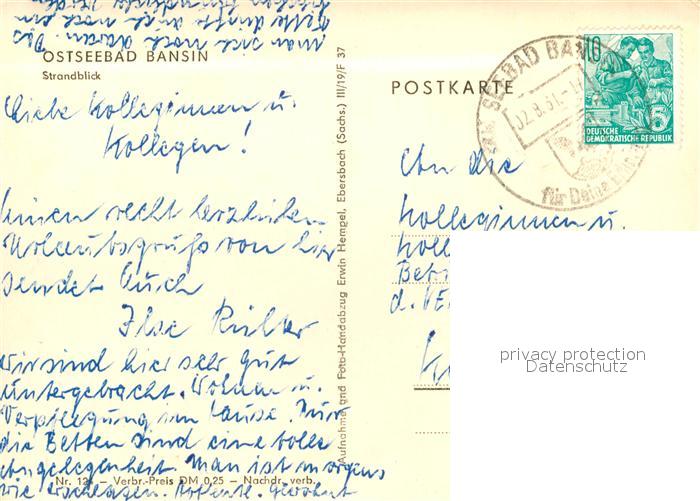 man sich noch daran. Das
OSTSEEBAD BANSIN
Strandblick
Liebe Kolleginnen u.
Kollegen!
Einen recht herzlichen
Urlaubsgruß von hier
sendet Euch
Ilse Richter
Wir sind hier sehr gut
untergebracht. Wohnen u.
Verpflegung im Hause. Nur
die Betten sind eine tolle
Angelegenheit. Man ist morgens
wie erschlagen. Hoffentl. gewöhnt
Nr. 12 — Verbr.-Preis DM 0,25 — Nachdr. verb.
Aufnahme und Foto-Handabzug Erwin Hempel, Ebersbach (Sachs.) III/19/F 37
POSTKARTE
SEEBAD BANSIN
für Deine
10
5
DEUTSCHE
DEMOKRATISCHE REPUBLIK
An die
Kolleginnen u.
Koll
Betr
d. VE
privacy protection
Datenschutz